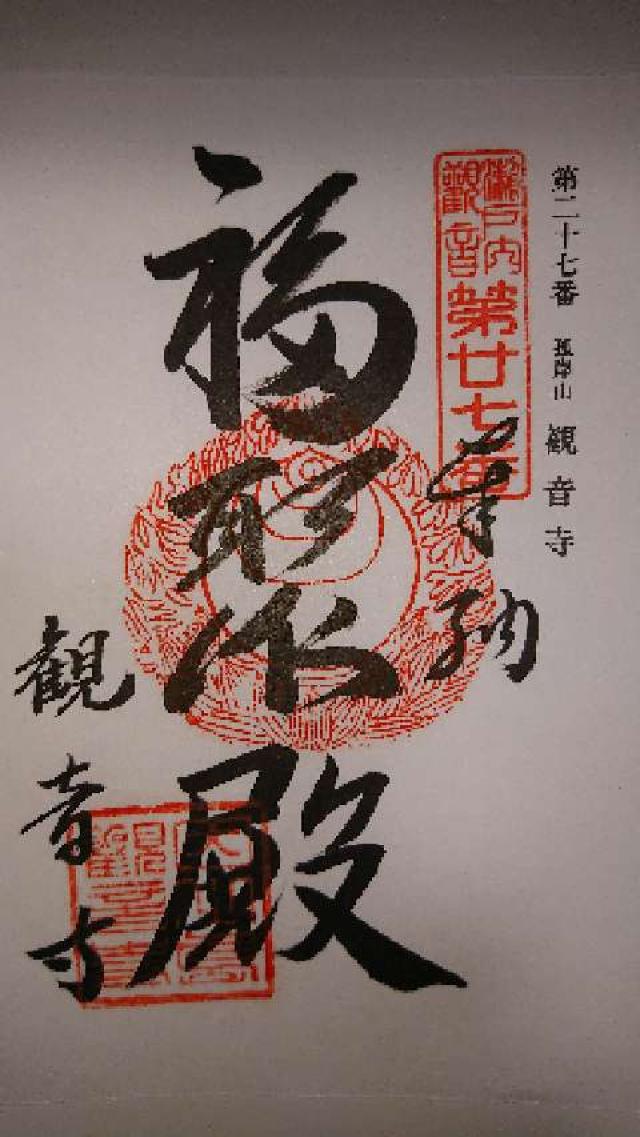 第二十七番 孤岸山 観音寺
瀬戸内觀音第廿七番
奉納
福聚殿
観音寺